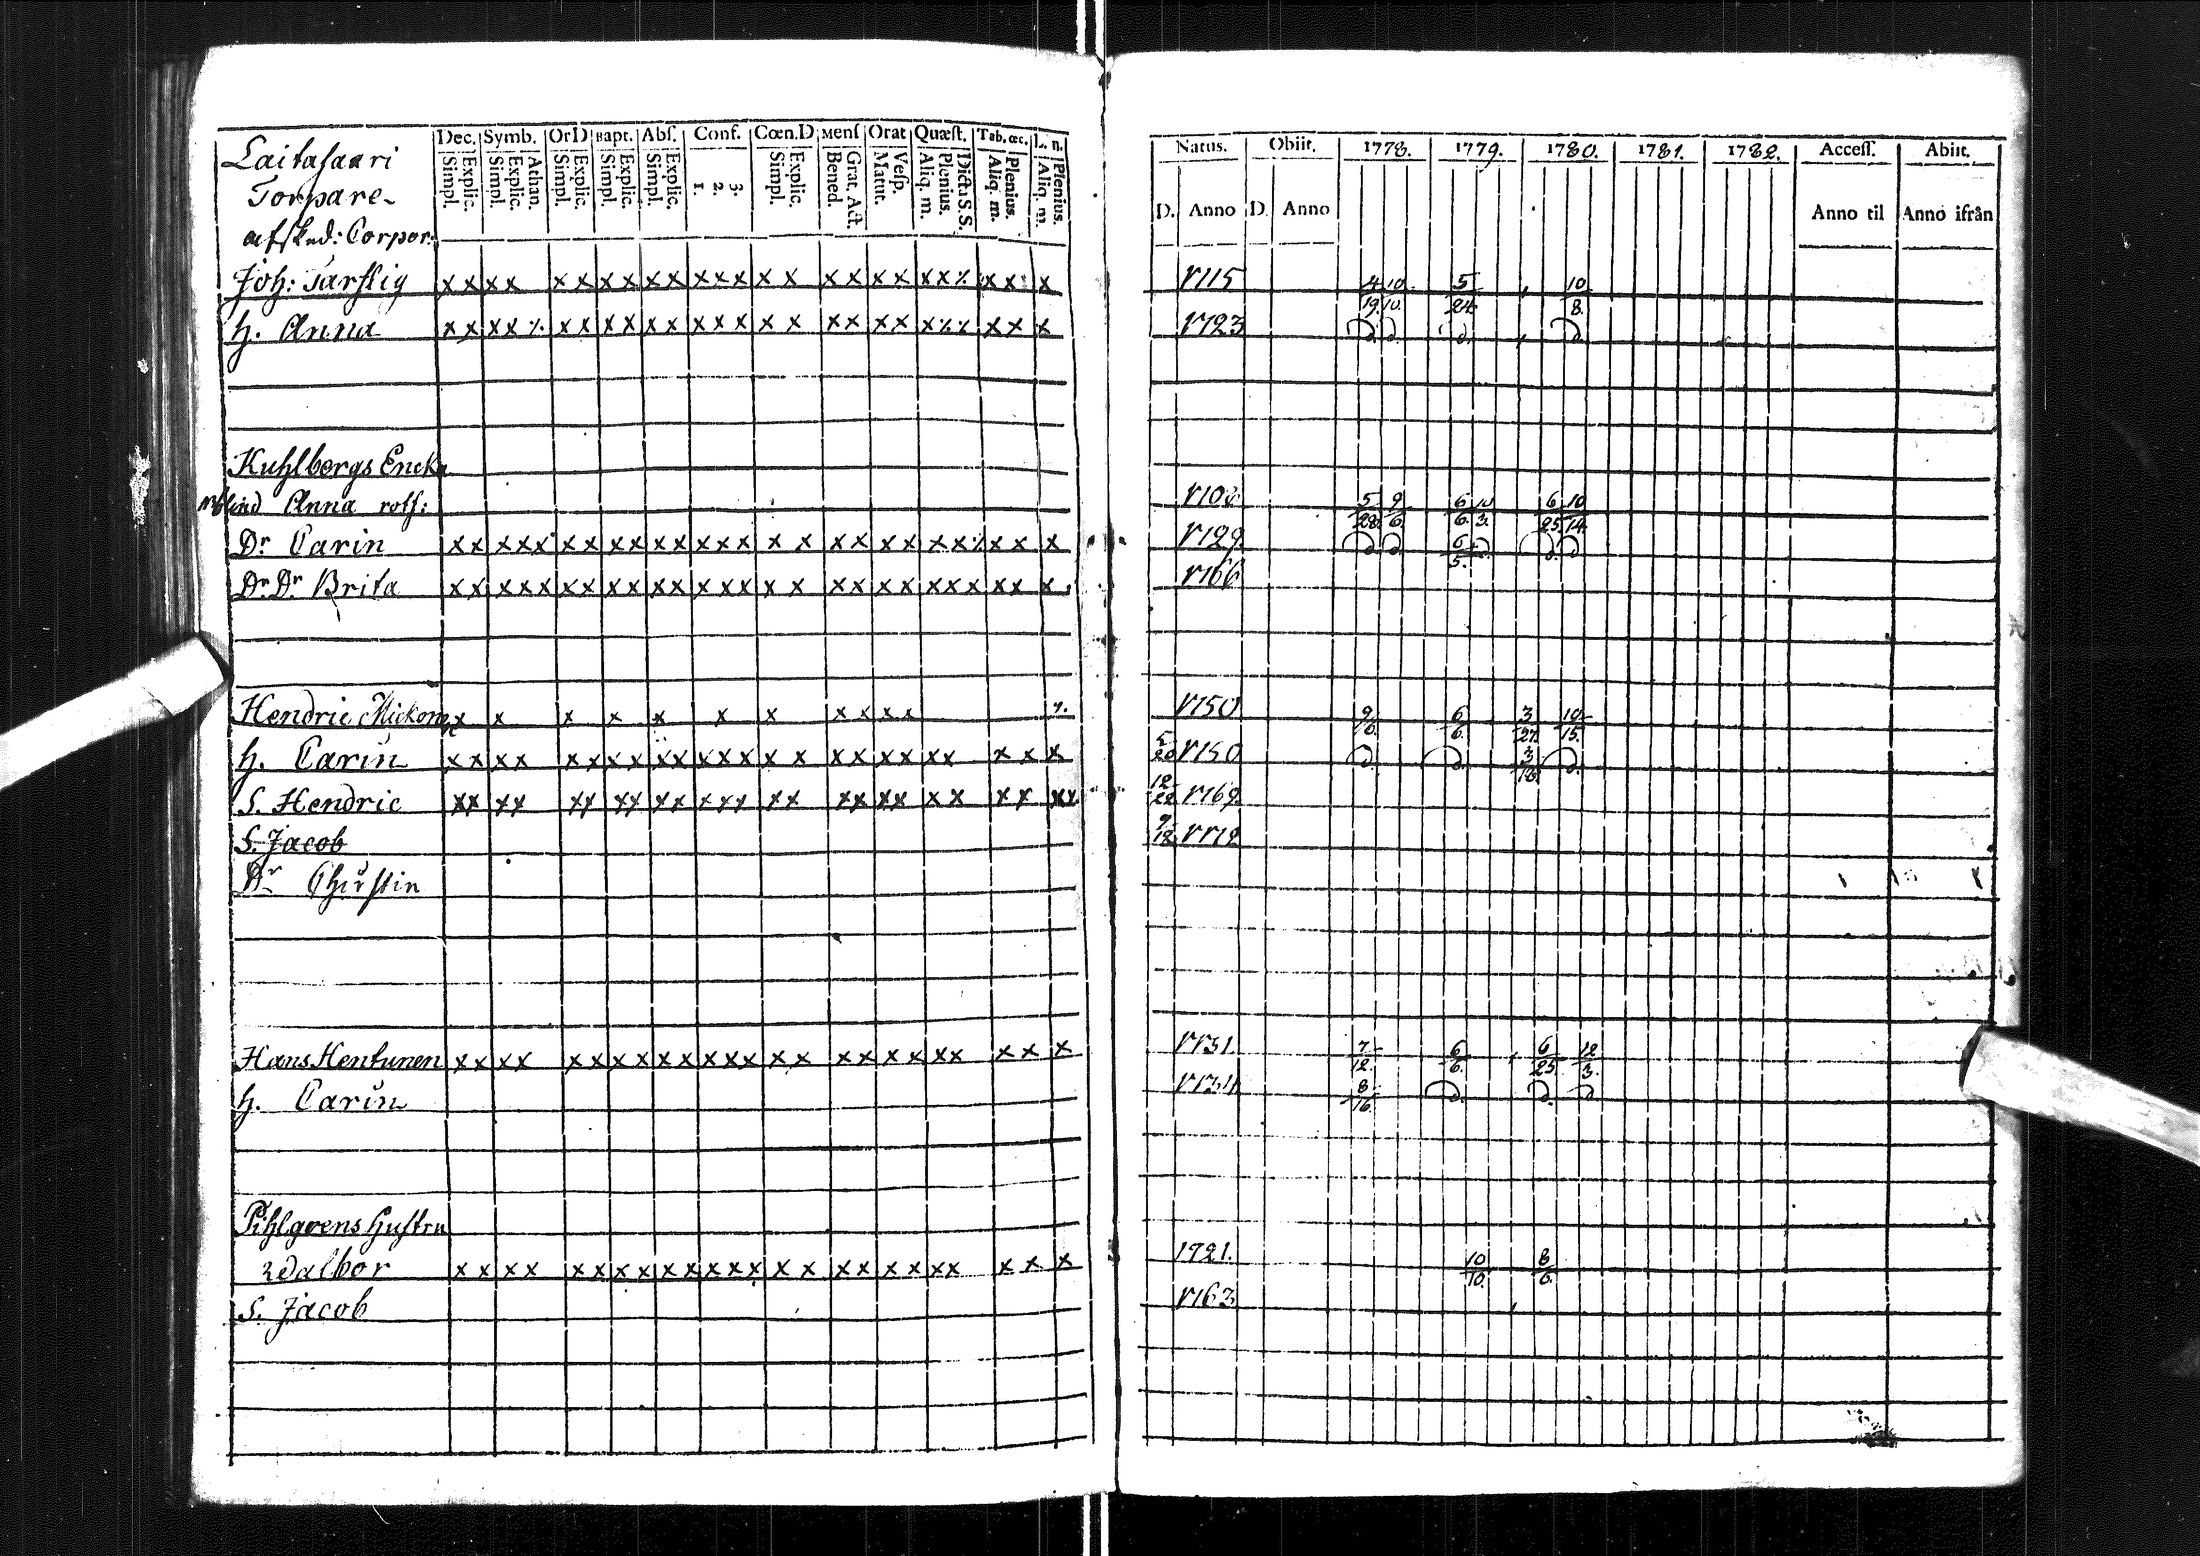 Laitasaari
Torpare
afsked: Corpor:
Dec. Symb. OrD Bapt. Abs. Conf. Cœn.D Mens Orat Quæst. Tab.œc. L. n.
Simpl. Explic. Simpl. Explic. Athan. Simpl. Explic. Simpl. Explic. Simpl. Explic. 1. 2. 3. Simpl. Explic. Bened. Grat. Act. Matut. Vesp. Aliq. m. Plenius. Dicta S.S. Aliq. m. Plenius. Aliq. m. Plenius.
Natus. Obiit. 1778. 1779. 1780. 1781. 1782. Access. Abiit.
D. Anno D. Anno Anno til Anno ifrån
Joh: Tarflig x x x x x x x x x x x x x x x x x x x x x ٪ x x x 1715 4/19 10/10. 5/24 10/8.
h. Anna x x x x ٪ x x x x x x x x x x x x x x x x ٪ ٪ x x x 1723
Kuhlbergs Encka
Anna rolf: 5/28 9/6. 6/6. 10/3. 6/25 10/14.
Dr Carin x x x x x x x x x x x x x x x x x x x x x x x ٪ x x x 1729 6/5.
Dr. Dr Brita x x x x x x x x x x x x x x x x x x x x x x x x x x x 1766
Hendric x x x x x x x x x x x ٪ 1750 9/6. 6/6. 3/27. 10/15.
h. Carin x x x x x x x x x x x x x x x x x x x x x x x x 5/20 1750 3/18.
S. Hendric x x x x x x x x x x x x x x x x x x x x x x x x x 12/22 1769.
S. Jacob 9/18 1772
Dr Chirstin
Hans Hentunen x x x x x x x x x x x x x x x x x x x x x x x x 1731. 7/12. 6/6. 6/25 12/3.
h. Carin 1734 8/16.
Pihlgrens hustru
Walbor x x x x x x x x x x x x x x x x x x x x x x x x 1721. 10/10. 8/6.
S. Jacob 1763